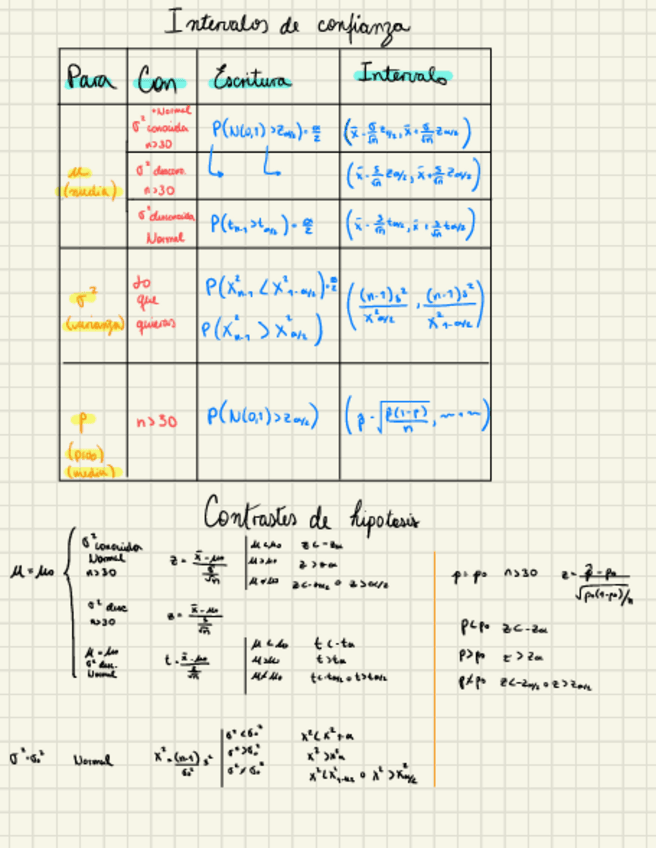 Intervalos de confianza
Para Con Escritura Intervalo
μ
(media)
• Normal
σ² conocida
n>30
P(N(0,1) > z_{α/2}) = α/2
(x̄ - σ/√n z_{α/2}, x̄ + σ/√n z_{α/2})
σ² descon.
n>30
(x̄ - s/√n z_{α/2}, x̄ + s/√n z_{α/2})
σ² desconocida
Normal
P(t_{n-1} > t_{α/2}) = α/2
(x̄ - s/√n t_{α/2}, x̄ + s/√n t_{α/2})
σ²
(varianza)
lo
que
quieras
P(X²_{n-1} < X²_{1-α/2}) = α/2
P(X²_{n-1} > X²_{α/2})
((n-1)s²/X²_{α/2}, (n-1)s²/X²_{1-α/2})
p
(prob)
(media)
n>30
P(N(0,1) > z_{α/2})
(p̂ - √(p̂(1-p̂)/n), ~ + ~)
Contrastes de hipotesis
μ = μ₀
σ² conocida
Normal
n>30
z = (x̄ - μ₀)/(σ/√n)
μ < μ₀ z < -zα
μ > μ₀ z > zα
μ ≠ μ₀ z < -z_{α/2} o z > z_{α/2}
σ² desc
n>30
z = (x̄ - μ₀)/(s/√n)
μ = μ₀
σ² des.
Normal
t = (x̄ - μ₀)/(s/√n)
μ < μ₀ t < -tα
μ > μ₀ t > tα
μ ≠ μ₀ t < -t_{α/2} o t > t_{α/2}
p = p₀ n>30 z = (p̂ - p₀)/√(p₀(1-p₀)/n)
p < p₀ z < -zα
p > p₀ z > zα
p ≠ p₀ z < -z_{α/2} o z > z_{α/2}
σ² = σ₀² Normal X² = (n-1)/σ₀² s²
σ² < σ₀² X² < X²_{1-α}
σ² > σ₀² X² > X²α
σ² ≠ σ₀² X² < X²_{1-α/2} o X² > X²_{α/2}